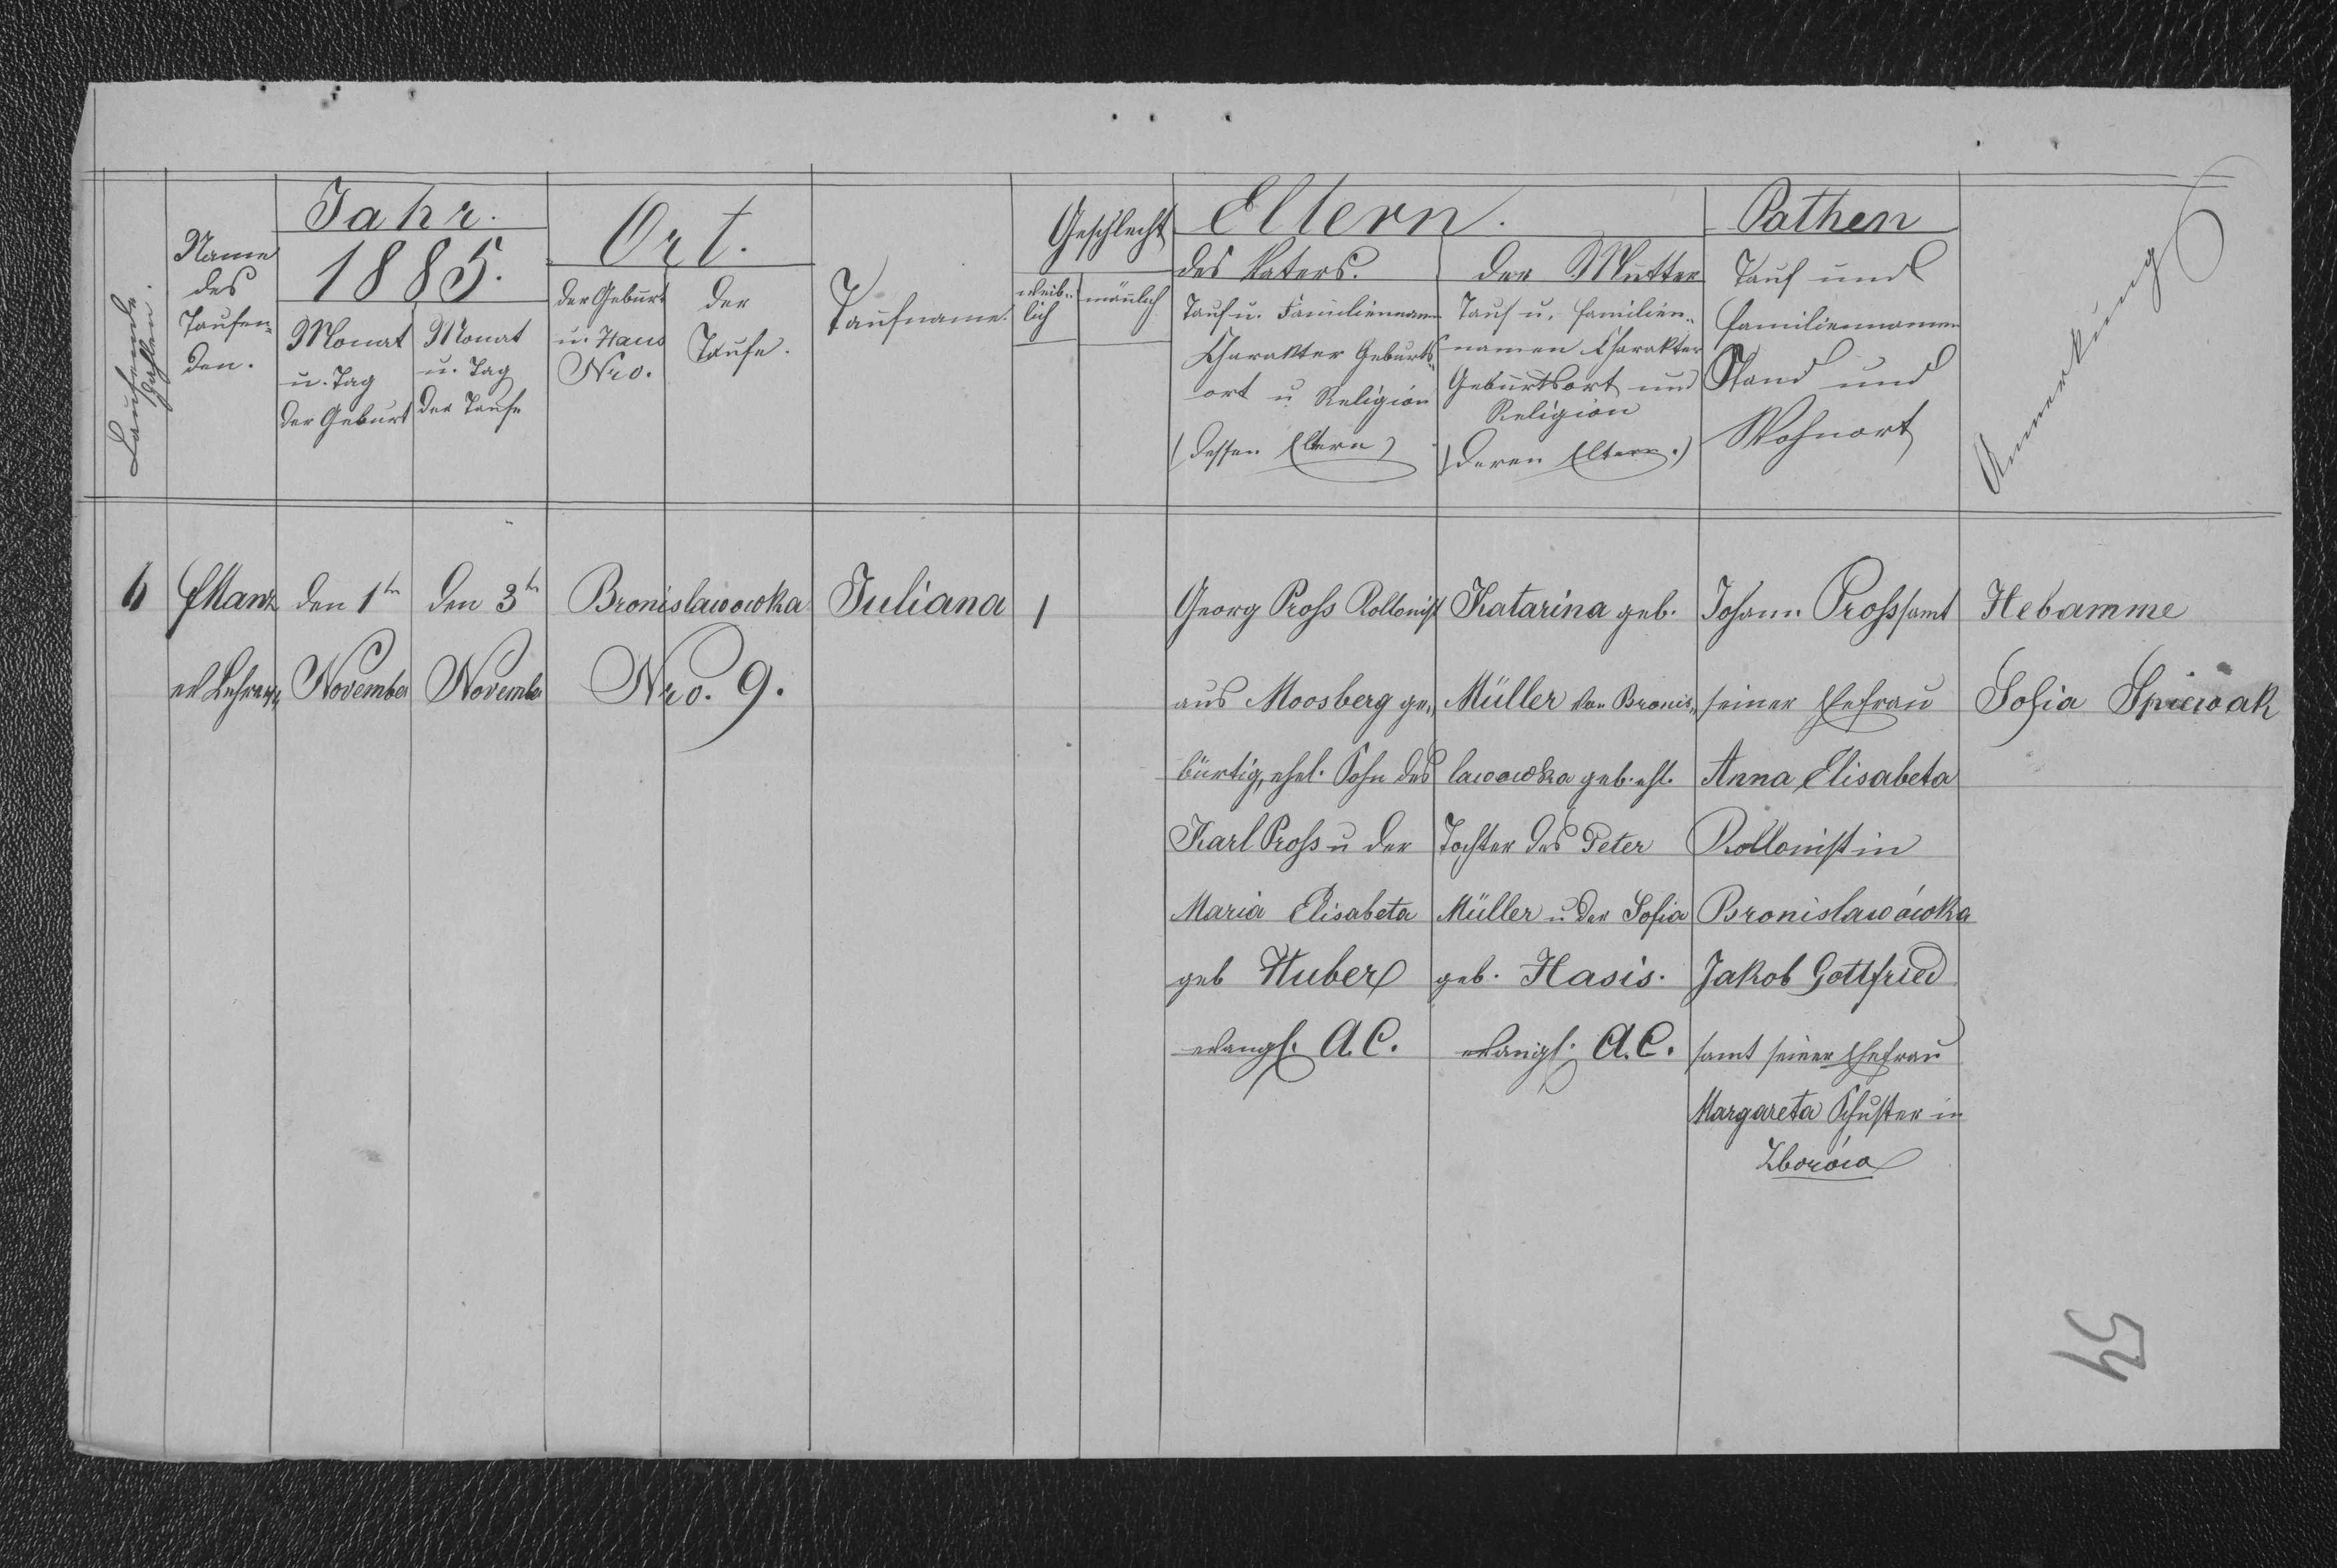 Laufende Zahlen.
Name
des
Taufen-
den.
Jahr.
1885.
Monat
u. Tag
der Geburt
Monat
u. Tag
der Taufe
Ort.
der Geburt
u. Haus
Nro.
der
Taufe.
Taufname.
Geschlecht
weib-
lich
männlich
Eltern.
des Vaters.
Tauf u. Familiennam
Charakter Geburts-
ort u Religion
(dessen Eltern)
der Mutter
Tauf u. familien-
namen Charakter
Geburtsort und
Religion
(deren Eltern.)
Pathen
Tauf und
familiennamen
Stand und
Wohnort
Anmerkung
6
den 1tn
November
den 3tn
November
Bronislawowka
Nro. 9.
Juliana
1
Georg Pross Kollonist
aus Moosberg ge-
bürtig, ehel. Sohn des
Karl Pross u der
Maria Elisabeta
geb Huber
evangl. A.C.
Katarina geb.
Müller von Bronis-
lawowka geb. ehl.
Tochter des Peter
Müller u der Sofia
geb. Hasis.
evangl. A.C.
Johann Pross samt
seiner Ehefrau
Anna Elisabeta
Kollonist in
Bronislawówka
Jakob Gottfried
samt seiner Ehefrau
Margareta Schuster in
Zborów
Hebamme
Sofia Spiewak
54